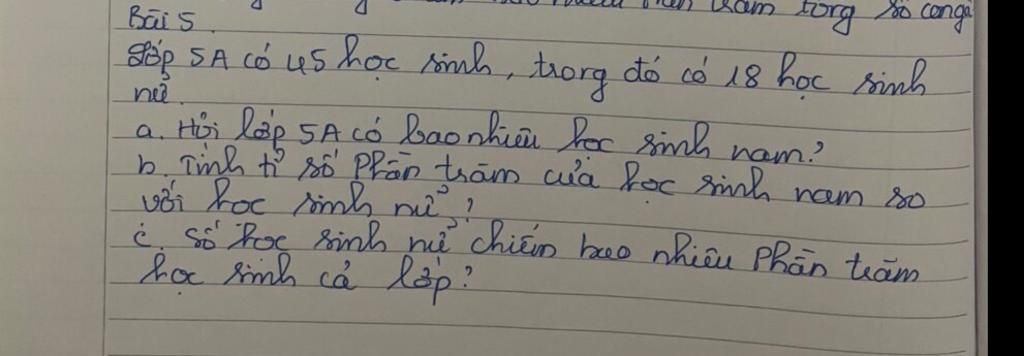 trăm tổng số con gà
Bài 5.
Lớp 5A có 45 học sinh, trong đó có 18 học sinh
nữ.
a. Hỏi lớp 5A có bao nhiêu học sinh nam?
b. Tính tỉ số phần trăm của học sinh nam so
với học sinh nữ?
c. Số học sinh nữ chiếm bao nhiêu phần trăm
học sinh cả lớp?